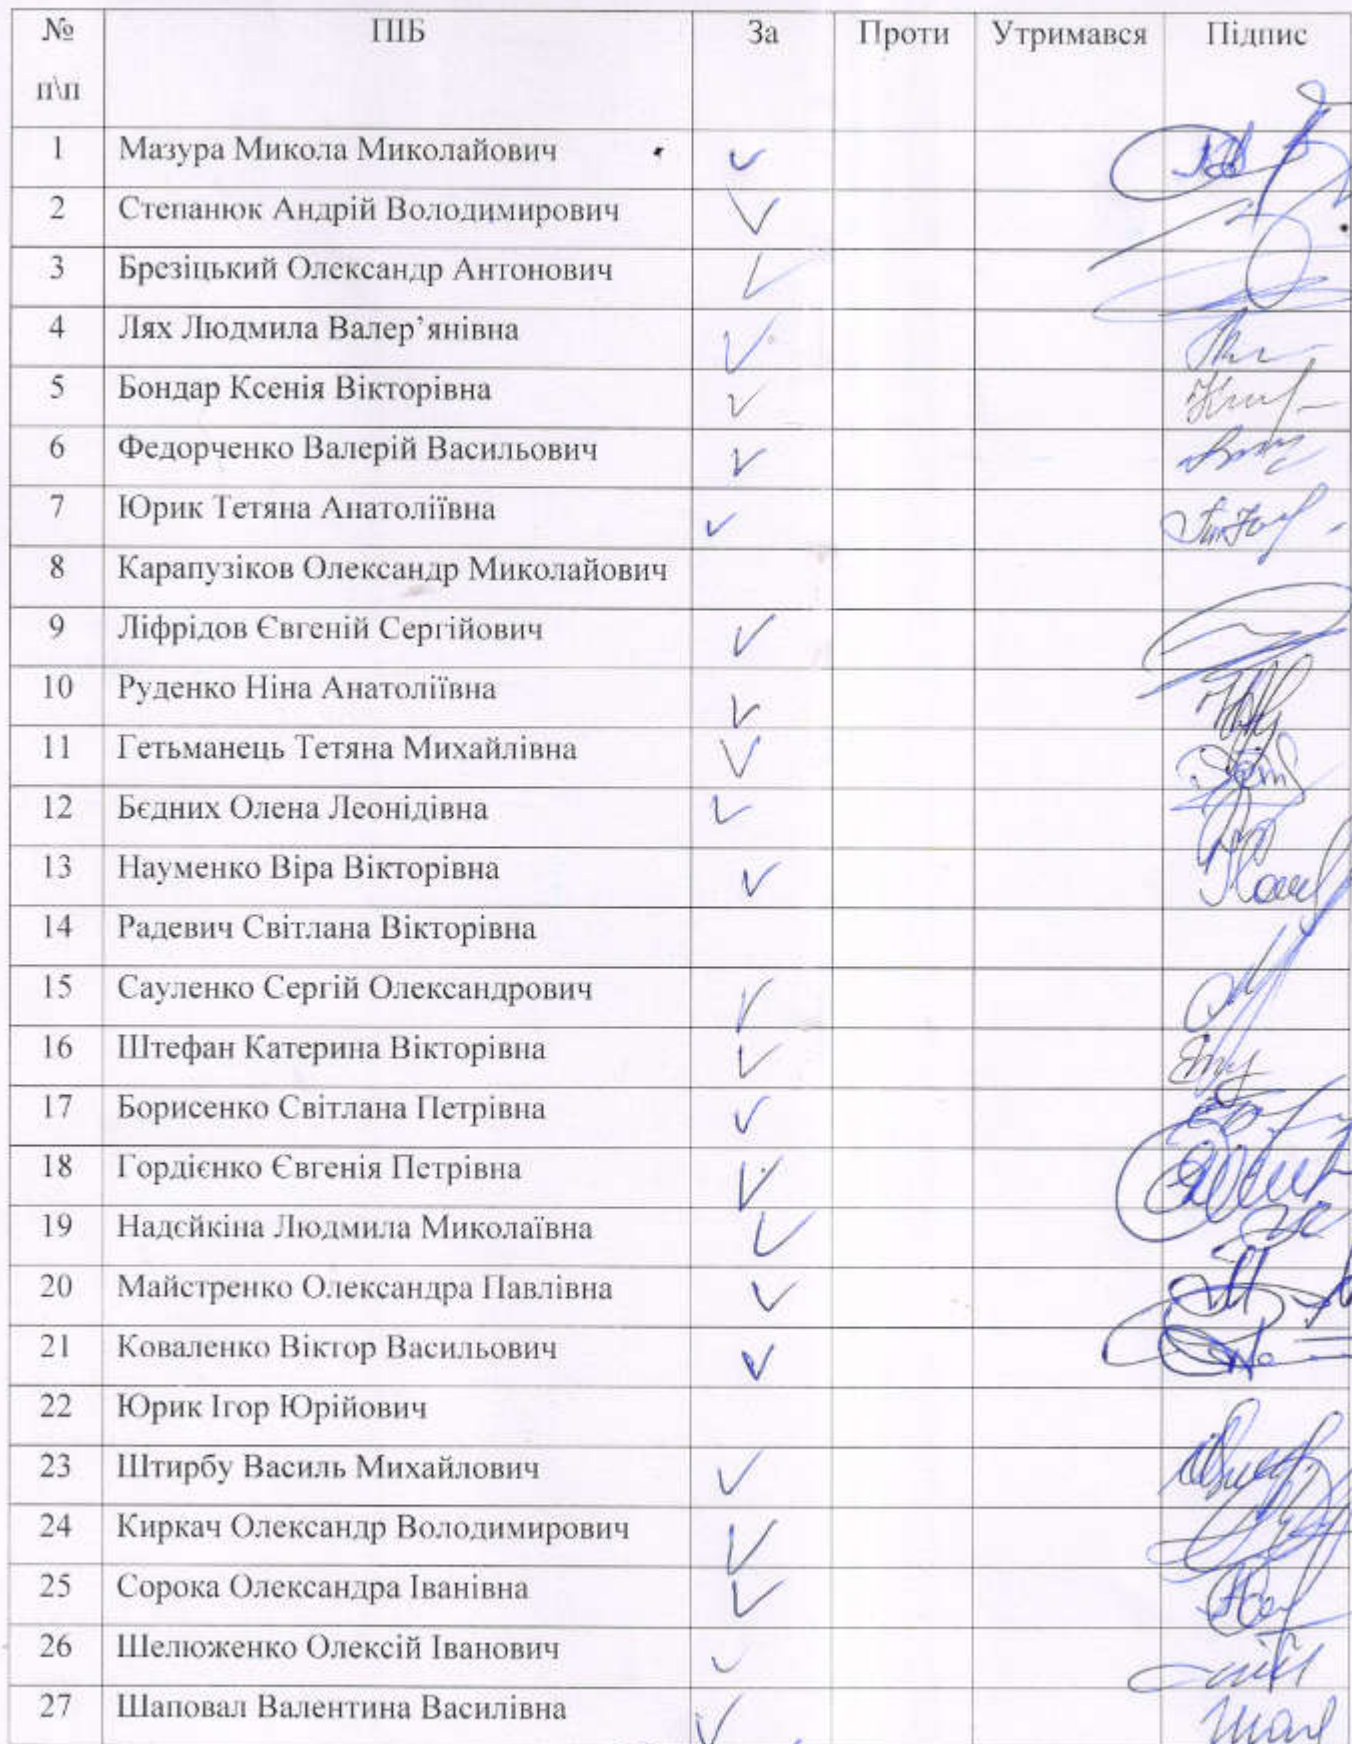 № п\п ПІБ За Проти Утримався Підпис
1 Мазура Микола Миколайович ✓
2 Степанюк Андрій Володимирович ✓
3 Брезіцький Олександр Антонович ✓
4 Лях Людмила Валер’янівна ✓
5 Бондар Ксенія Вікторівна ✓
6 Федорченко Валерій Васильович ✓
7 Юрик Тетяна Анатоліївна ✓
8 Карапузіков Олександр Миколайович
9 Ліфрідов Євгеній Сергійович ✓
10 Руденко Ніна Анатоліївна ✓
11 Гетьманець Тетяна Михайлівна ✓
12 Бєдних Олена Леонідівна ✓
13 Науменко Віра Вікторівна ✓
14 Радевич Світлана Вікторівна
15 Сауленко Сергій Олександрович ✓
16 Штефан Катерина Вікторівна ✓
17 Борисенко Світлана Петрівна ✓
18 Гордієнко Євгенія Петрівна ✓
19 Надєйкіна Людмила Миколаївна ✓
20 Майстренко Олександра Павлівна ✓
21 Коваленко Віктор Васильович ✓
22 Юрик Ігор Юрійович
23 Штирбу Василь Михайлович ✓
24 Киркач Олександр Володимирович ✓
25 Сорока Олександра Іванівна ✓
26 Шелюженко Олексій Іванович ✓
27 Шаповал Валентина Василівна ✓